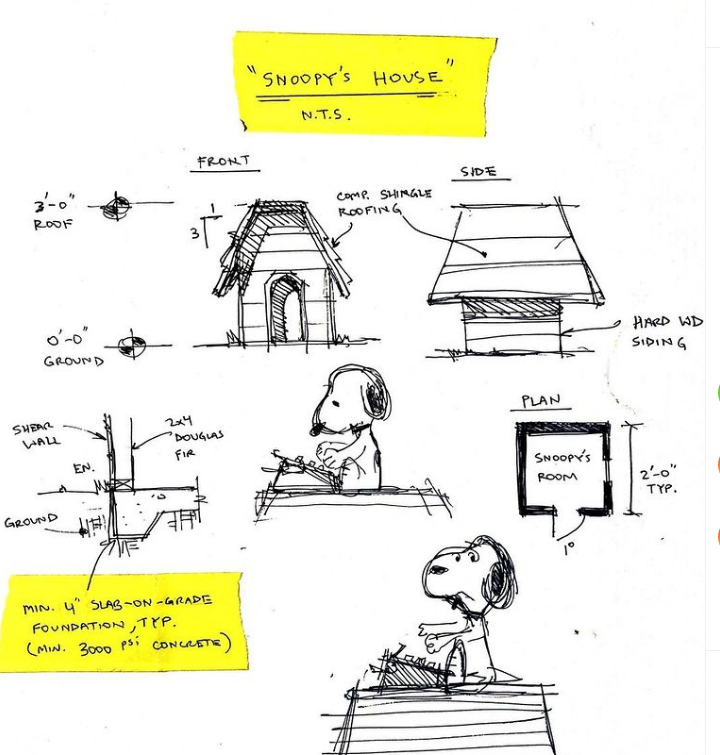 "SNOOPY'S HOUSE"
N.T.S.
FRONT
SIDE
3'-0"
ROOF
1
3
COMP. SHINGLE
ROOFING
0'-0"
GROUND
HARD WD
SIDING
SHEAR
WALL
2x4
DOUGLAS
FIR
EN.
GROUND
PLAN
SNOOPY'S
ROOM
2'-0"
TYP.
1°
MIN. 4" SLAB-ON-GRADE
FOUNDATION, TYP.
(MIN. 3000 PSI CONCRETE)